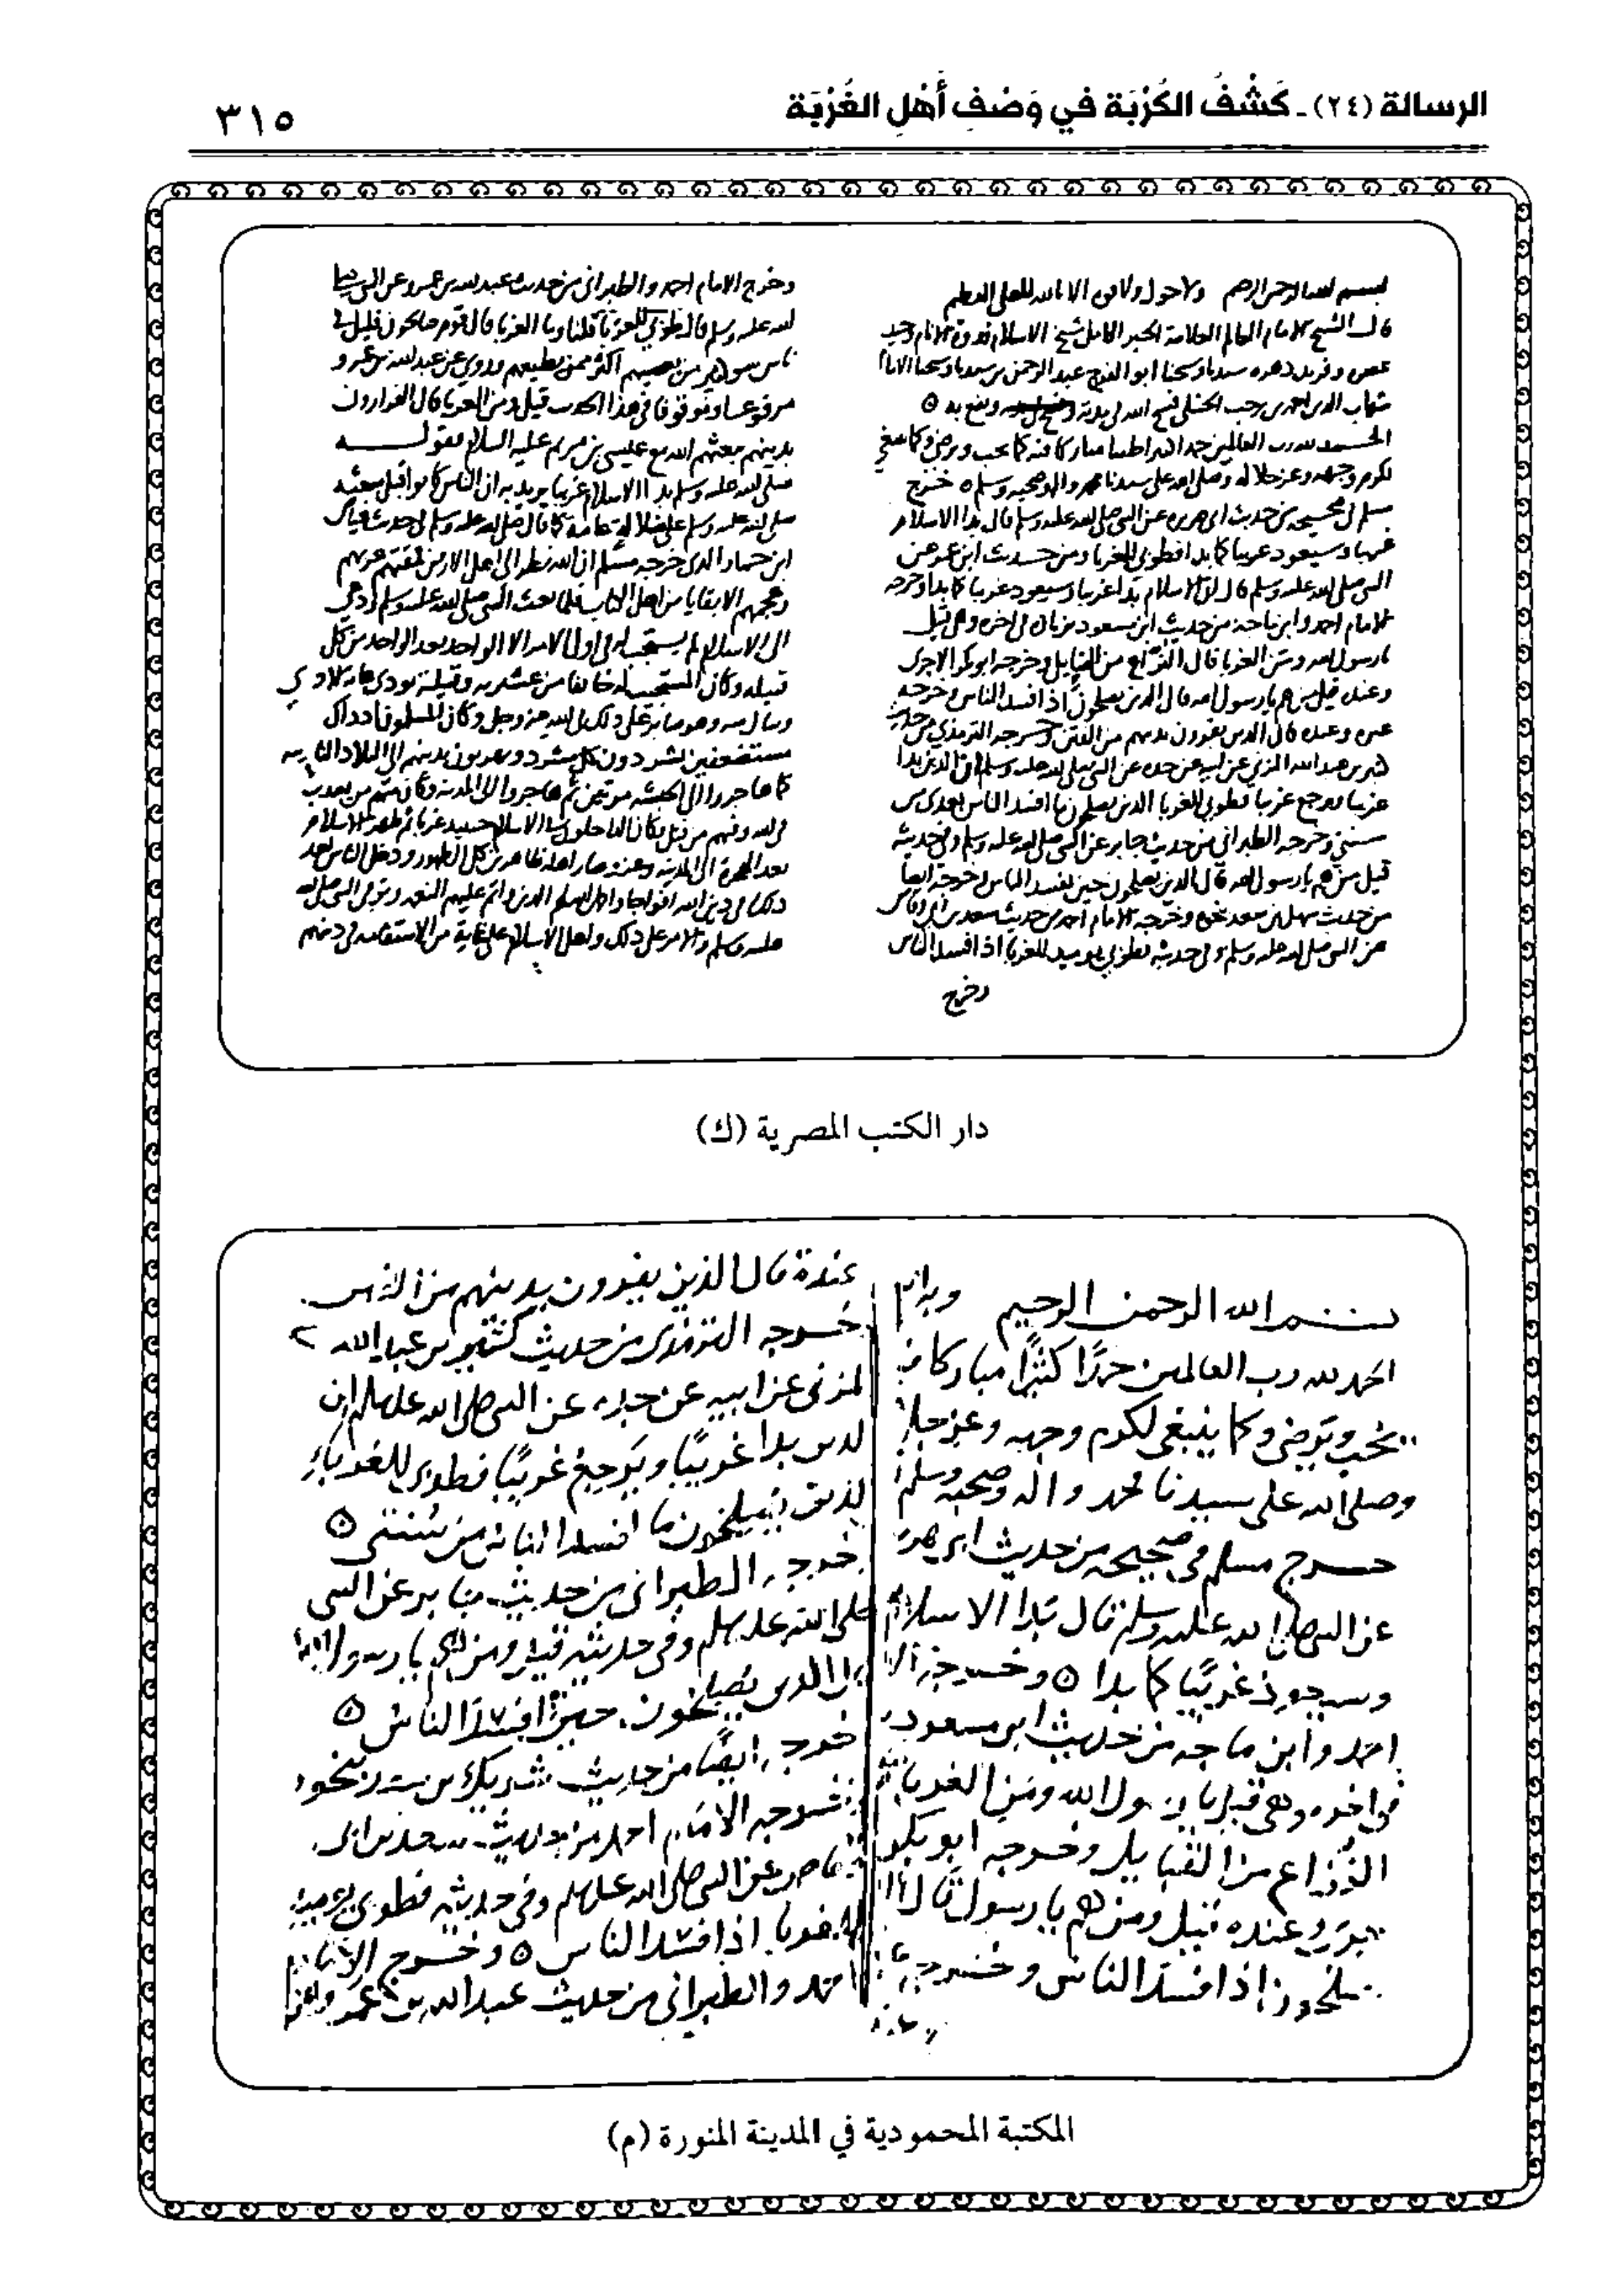 الرسالة (٢٤) ـ كَشْفُ الكُرْبَة في وَصْفِ أَهْلِ الغُرْبَة
٣١٥
بسم الله الرحمن الرحيم ولا حول ولا قوة الا بالله العلي العظيم
قال الشيخ الامام العالم العلامة الحبر الكامل شيخ الاسلام قدوة الانام وحيد
عصره وفريد دهره سيدنا وشيخنا ابو الفرج عبد الرحمن بن سيدنا وشيخنا الامام
شهاب الدين احمد بن رجب الحنبلي فسح الله في مدته ونفع به
الحمد لله رب العالمين حمدا كثيرا طيبا مباركا فيه كما يحب ربنا ويرضى وكما ينبغي
لكرم وجهه وعز جلاله وصلى الله على سيدنا محمد واله وصحبه وسلم خرج
مسلم في صحيحه من حديث ابي هريره عن النبي صلى الله عليه وسلم قال بدا الاسلام
غريبا وسيعود غريبا كما بدا فطوبى للغربا ومن حديث ابن عمر عن
النبي صلى الله عليه وسلم قال ان الاسلام بدا غريبا وسيعود غريبا كما بدا وخرجه
الامام احمد وابن ماجة من حديث ابن مسعود بزيادة في اخره وهي قيل
يا رسول الله ومن الغربا قال النزاع من القبايل وخرجه ابو بكر الاجري
وعنده قيل من هم يا رسول الله قال الذين يصلحون اذا فسد الناس وخرجه
غيره وعنده قال الذين يفرون بدينهم من الفتن وخرجه الترمذي من حديث
كثير بن عبد الله المزني عن ابيه عن جده عن النبي صلى الله عليه وسلم ان الدين بدا
غريبا ويرجع غريبا فطوبى للغربا الذين يصلحون ما افسد الناس بعدي من
سنتي وخرجه الطبراني من حديث جابر عن النبي صلى الله عليه وسلم وفي حديثه
قيل من هم يا رسول الله قال الذين يصلحون حين يفسد الناس وخرجه ايضا
من حديث سهل بن سعد بنحوه وخرجه الامام احمد من حديث سعد بن ابي وقاص
عن النبي صلى الله عليه وسلم وفي حديثه فطوبى يوميد للغربا اذا فسد الناس
وخرج
وخرج الامام احمد والطبراني من حديث عبد الله بن عمرو عن النبي صلى
الله عليه وسلم قال طوبى للغربا قلنا وما الغربا قال قوم صالحون قليل في
ناس سوء كثير من يعصيهم اكثر ممن يطيعهم وروي عن عبد الله بن عمرو
مرفوعا وموقوفا في هذا الحديث قيل ومن الغربا قال الفرارون
بدينهم يبعثهم الله مع عيسى بن مريم عليه السلام فقوله
صلى الله عليه وسلم بدا الاسلام غريبا يريد به ان الناس كانوا قبل مبعثه
صلى الله عليه وسلم على ضلالة عامة كما قال صلى الله عليه وسلم في حديث عياض
ابن حمار الذي خرجه مسلم ان الله نظر الى اهل الارض فمقتهم عربهم
وعجمهم الا بقايا من اهل الكتاب فلما بعث النبي صلى الله عليه وسلم ودعى
الى الاسلام لم يستجب له في اول الامر الا الواحد بعد الواحد من كل
قبيله وكان المستجيب له خائفا من عشيرته وقبيلته يودى غاية الاذى
وينال منه وهو صابر على ذلك في الله عز وجل وكان المسلمون اذ ذاك
مستضعفين يشردون كل مشرد ويهربون بدينهم الى البلاد النائيه
كما هاجروا الى الحبشه مرتين ثم هاجروا الى المدينه وكان منهم من يعذب
في الله وفيهم من قتل فكان الداخلون في الاسلام حينيد غربا ثم ظهر الاسلام
بعد الهجرة الى المدينه وعز وصار اهله ظاهرين كل الظهور ودخل الناس بعد
ذلك في دين الله افواجا واكمل الله لهم الدين واتم عليهم النعمه وتوفي النبي صلى الله
عليه وسلم والامر على ذلك واهل الاسلام على غاية من الاستقامه في دينهم
دار الكتب المصرية (ك)
بسم الله الرحمن الرحيم
الحمد لله رب العالمين حمدًا كثيرًا مباركا
يحب ويرضى وكما ينبغي لكرم وجهه وعز جلا
وصلى الله على سيدنا محمد واله وصحبه وسلم
خرج مسلم في صحيحه من حديث ابي هريرة
عن النبي صلى الله عليه وسلم قال بدا الاسلام
وسيعود غريبًا كما بدا وخرجه الا
احمد وابن ماجه من حديث ابن مسعود
في اخره وهي قيل يا رسول الله ومن الغربا
النزاع من القبايل وخرجه ابو بكر
وعنده قيل ومن هم يا رسول قال
يصلحون اذا فسد الناس وخرجه
عنده قال الذين يفرون بدينهم من الفتن
خرجه الترمذي من حديث كثير بن عبد الله
لمزني عن ابيه عن جده عن النبي صلى الله عليه وسلم ان
لدين بدا غريبًا ويرجع غريبًا فطوبى للغربا
لذين يصلحون ما افسد الناس من سنتي
خرجه الطبراني من حديث جابر عن النبي
صلى الله عليه وسلم وفي حديثه قيل ومن هم يا رسول الله
قال الذين يصلحون حين افسد الناس
خرجه ايضًا من حديث بنحوه
وخرجه الامام احمد من حديث سعد بن ابي
وقاص عن النبي صلى الله عليه وسلم وفي حديثه فطوبى يوميذ
للغربا اذا فسد الناس وخرج الامام
احمد والطبراني من حديث عبد الله بن عمرو
المكتبة المحمودية في المدينة المنورة (م)